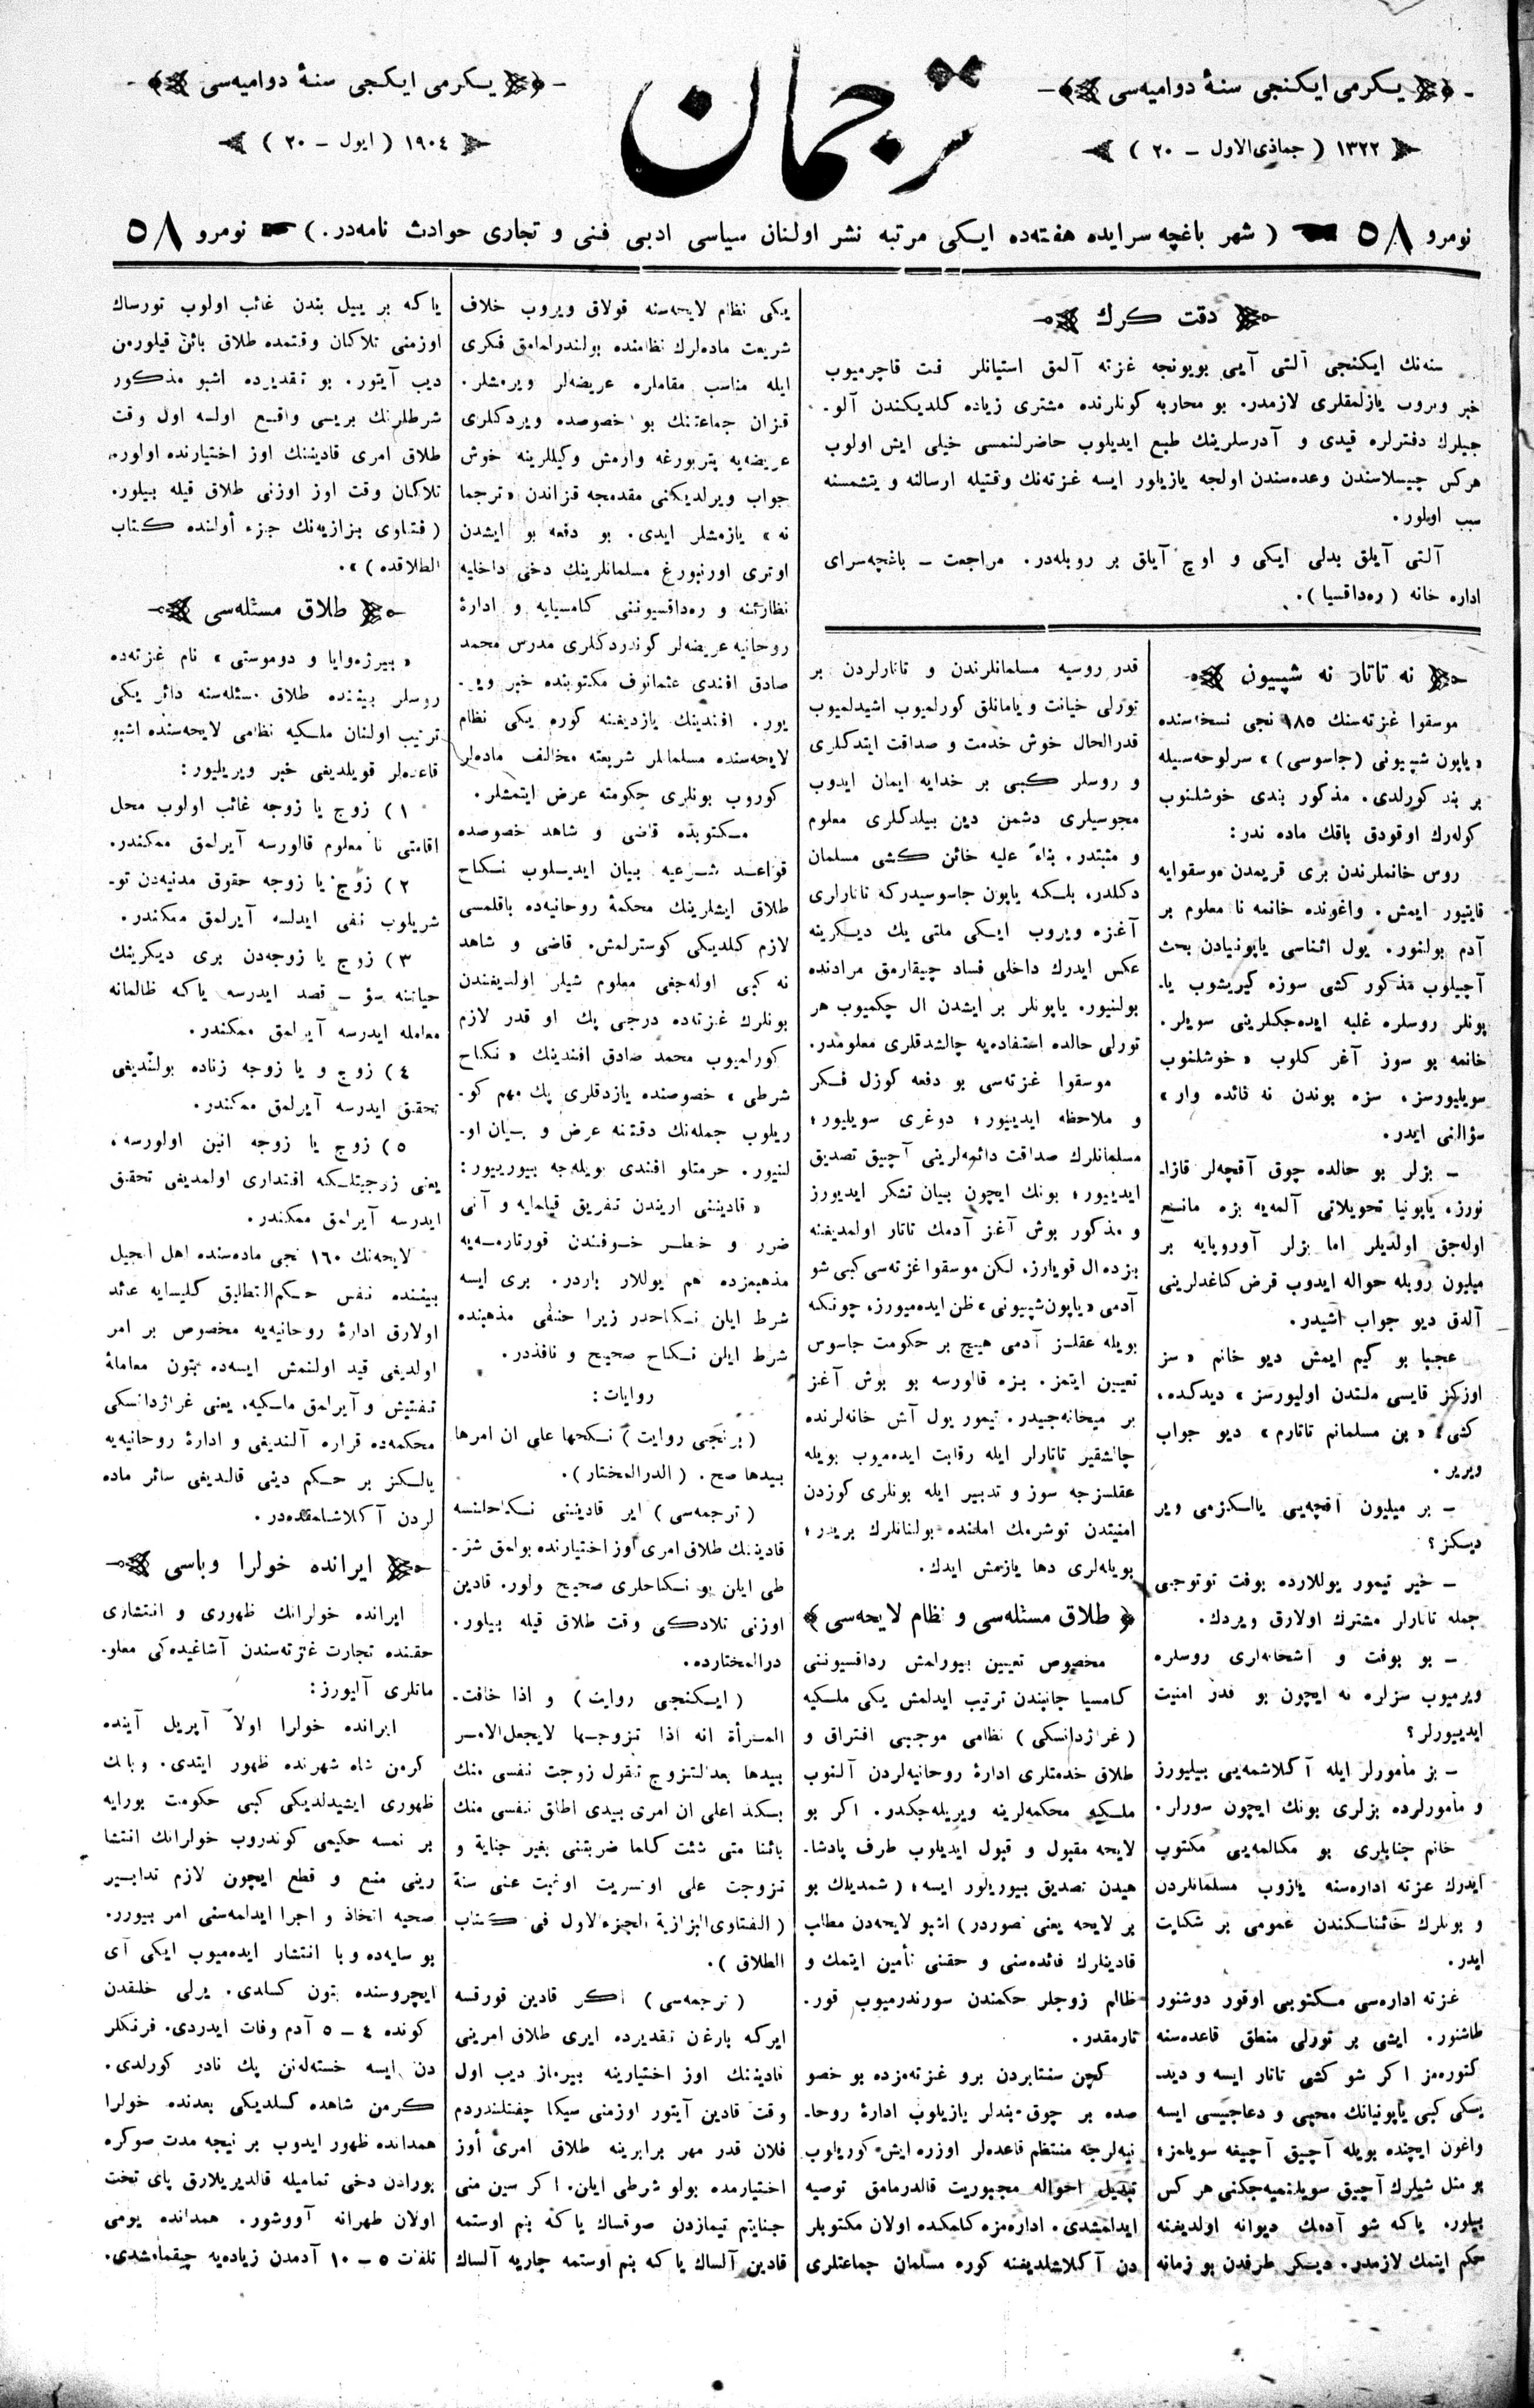 يكرمی ایكنجی سنهٔ دوامیه‌سی
١٣٢٢ ( جماذی‌الاول ـ ٢٠ )
ترجمان
يكرمی ایكنجی سنهٔ دوامیه‌سی
١٩٠٤ ( ایول ـ ٢٠ )
نومرو ٥٨ ( شهر باغچه سرایده هفته‌ده ایكی مرتبه نشر اولنان سیاسی ادبی فنی و تجاری حوادث نامه‌در. ) نومرو ٥٨
دقت كرك
سنه‌نك ایكنجی آلتی آیی بویونجه غزته آلمق استیانلر فت قاچرمیوب
خبر ویروب یازلمقلری لازمدر. بو محاربه كونلرنده مشتری زیاده كلدیكندن آلو‌ـ
جیلرك دفترلره قیدی و آدرسلرینك طبع ایدیلوب حاضرلنمسی خیلی ایش اولوب
هركس جیسلاسندن وعده‌سندن اولجه یازیلور ایسه غزته‌نك وقتیله ارسالنه و یتشمسنه
سبب اولور.
آلتی آیلق بدلی ایكی و اوچ آیلق بر روبله‌در. مراجعت ـ باغچه‌سرای
اداره خانه ( ره‌داقسیا ).
نه تاتار نه شپیون
موسقوا غزته‌سنك ١٨٥ نجی نسخه‌سنده
« یاپون شپیونی (جاسوسی) » سرلوحه‌سیله
بر بند كورلدی. مذكور بندی خوشلنوب
كوله‌رك اوقودق باقك ماده ندر:
روس خانملرندن بری قریمدن موسقوایه
قایتیور ایمش. واغونده خانمه نا معلوم بر
آدم بولنور. یول اثناسی یاپونیادن بحث
آچیلوب مذكور كشی سوزه كیریشوب یا‌ـ
پونلر روسلره غلبه ایده‌جكلرینی سویلر.
خانمه بو سوز آغر كلوب « خوشلنوب
سویلیورسز، سزه بوندن نه فائده وار »
سؤالنی ایدر.
ـ بزلر بو حالده چوق آقچه‌لر قازا‌ـ
نورز، یاپونیا تحویلاتی آلمه‌یه بزه مانع
اوله‌جق اولدیلر اما بزلر آوروپایه بر
میلیون روبله حواله ایدوب قرض كاغدلرینی
آلدق دیو جواب اشیدر.
عجبا بو كیم ایمش دیو خانم « سز
اوزكز قایسی ملتدن اولیورسز » دیدكده،
كشی، « بن مسلمانم تاتارم » دیو جواب
ویریر.
ـ بر میلیون آقچه‌یی یالكزمی ویر
دیكز؟
ـ خیر تیمور یوللارده بوفت توتوجی
جمله تاتارلر مشترك اولارق ویردك.
ـ بو بوفت و آشخانه‌لری روسلره
ویرمیوب سزلره نه ایچون بو قدر امنیت
ایدییورلر؟
ـ بز مأمورلر ایله آكلاشمه‌یی بیلیورز
و مأمورلرده بزلری بونك ایچون سورلر.
خانم جنابلری بو مكالمه‌یی مكتوب
ایدرك غزته اداره‌سنه یازوب مسلمانلردن
و بونلرك خائنلكندن عمومی بر شكایت
ایدر.
غزته اداره‌سی مكتوبی اوقور دوشنور
طاشنور. ایشی بر تورلی منطق قاعده‌سنه
كتوره‌مز اكر شو كشی تاتار ایسه و دید‌ـ
یكی كبی یاپونیانك محبی و دعاجیسی ایسه
واغون ایچنده بویله آچیق آچیغه سویلمز؛
بو مثل شیلرك آچیق سویلنمیه‌جكنی هر كس
بیلور. یاكه شو آدمك دیوانه اولدیغنه
حكم ایتمك لازمدر. دیكر طرفدن بو زمانه
قدر روسیه مسلمانلرندن و تاتارلردن بر
تورلی خیانت و یامانلق كورلمیوب اشیدلمیوب
قدرالحال خوش خدمت و صداقت ایتدكلری
و روسلر كبی بر خدایه ایمان ایدوب
مجوسیلری دشمن دین بیلدكلری معلوم
و مثبتدر. بناءً علیه خائن كشی مسلمان
دكلدر، بلكه یاپون جاسوسیدركه تاتارلری
آغزه ویروب ایكی ملتی یك دیكرینه
عكس ایدرك داخلی فساد چیقارمق مرادنده
بولنیور. یاپونلر بر ایشدن ال چكمیوب هر
تورلی حالده استفاده‌یه چالشدقلری معلومدر.
موسقوا غزته‌سی بو دفعه كوزل فكر
و ملاحظه ایدییور؛ دوغری سویلیور؛
مسلمانلرك صداقت دائمه‌لرینی آچیق تصدیق
ایدییور؛ بونك ایچون بیان تشكر ایدیورز
و مذكور بوش آغز آدمك تاتار اولمدیغنه
بزده ال قویارز. لكن موسقوا غزته‌سی كبی شو
آدمی « یاپون شپیونی » ظن ایده‌میورز، چونكه
بویله عقلسز آدمی هیچ بر حكومت جاسوس
تعیین ایتمز. بزه قالورسه بو بوش آغز
بر میخانه‌جیدر. تیمور یول آش خانه‌لرنده
چالشقیر تاتارلر ایله رقابت ایده‌میوب بویله
عقلسزجه سوز و تدبیر ایله بونلری كوزدن
امنیتدن توشرمك املنده بولنانلرك بریدر؛
بویله‌لری دها یازمش ایدك.
طلاق مسئله‌سی و نظام لایحه‌سی
مخصوص تعیین بیورلمش رداقسیوننی
كامسیا جانبندن ترتیب ایدلمش یكی ملكیه
( غراژدانسكی ) نظامی موجبی افتراق و
طلاق خدمتلری ادارهٔ روحانیه‌لردن آلنوب
ملكیه محكمه‌لرینه ویریله‌جكدر. اكر بو
لایحه مقبول و قبول ایدیلوب طرف پادشا‌ـ
هیدن تصدیق بیوریلور ایسه؛ ( شمدیلك بو
بر لایحه یعنی تصوردر ) اشبو لایحه‌دن مطلب
قادینلرك فائده‌سنی و حقنی تأمین ایتمك و
ظالم زوجلر حكمندن سورندرمیوب قور‌ـ
تارمقدر.
كچن سنتابردن برو غزته‌مزده بو خصو
صده بر چوق بندلر یازیلوب ادارهٔ روحا‌ـ
نیه‌لرجه منتظم قاعده‌لر اوزره ایش كوریلوب
تبدیل احواله مجبوریت قالدرمامق توصیه
ایدلمشدی. اداره‌مزه كلمكده اولان مكتوبلر
دن آكلاشلدیغنه كوره مسلمان جماعتلری
یكی نظام لایحه‌سنه قولاق ویروب خلاف
شریعت ماده‌لرك نظامنده بولندرلمامق فكری
ایله مناسب مقاملره عریضه‌لر ویرمشلر.
قزان جماعتنك بو خصوصده ویردكلری
عریضه‌یه پتربورغه وارمش وكیللرینه خوش
جواب ویرلدیكنی مقدمجه قزاندن « ترجما
نه » یازمشلر ایدی. بو دفعه بو ایشدن
اوتری اورنبورغ مسلمانلرینك دخی داخلیه
نظارتنه و ره‌داقسیوننی كامسیایه و ادارهٔ
روحانیه عریضه‌لر كوندردكلری مدرس محمد
صادق افندی عثمانوف مكتوبنده خبر ویر‌ـ
یور. افندینك یازدیغنه كوره یكی نظام
لایحه‌سنده مسلمانلر شریعته مخالف ماده‌لر
كوروب بونلری حكومته عرض ایتمشلر.
مكتوبده قاضی و شاهد خصوصده
قواعد شرعیه بیان ایدیلوب نكاح
طلاق ایشلرینك محكمهٔ روحانیه‌ده باقلمسی
لازم كلدیكی كوسترلمش. قاضی و شاهد
نه كبی اوله‌جغی معلوم شیلر اولدیغندن
بونلرك غزته‌ده درجی پك او قدر لازم
كورلمیوب محمد صادق افندینك « نكاح
شرطی » خصوصنده یازدقلری پك مهم كو‌ـ
ریلوب جمله‌نك دقتنه عرض و بیان او‌ـ
لنیور. حرمتلو افندی بویله‌جه بیورییور:
« قادیننی اریندن تفریق قیلمایه و آنی
ضرر و خطر خوفندن قورتارمه‌یه
مذهبمزده هم یوللار باردر. بری ایسه
شرط ایلن نكاحدر زیرا حنفی مذهبنده
شرط ایلن نكاح صحیح و نافذدر.
روایات:
( برنجی روایت ) نكحها علی ان امرها
بیدها صح. ( الدرالمختار ).
( ترجمه‌سی ) ایر قادیننی نكاحلنسه
قادیننك طلاق امری اوز اختیارنده بولمق شر‌ـ
طی ایلن بو نكاحلری صحیح ولور. قادین
اوزنی تلادكی وقت طلاق قیله بیلور.
درالمختارده.
( ایكنجی روایت ) و اذا خافت‌ـ
المرأة انه اذا تزوجها لایجعل‌الامر
بیدها بعدالتزوج تقول زوجت نفسی منك
بكذا علی ان امری بیدی اطلق نفسی منك
بائنا متی شئت كلما ضربتنی بغیر جنایة و
تزوجت علی او تسریت او غبت عنی سنة
( الفتاوی‌البزازیة الجزءالاول فی كتاب
الطلاق ).
( ترجمه‌سی ) اكر قادین قورقسه
ایركه بارغن تقدیرده ایری طلاق امرینی
قادیننك اوز اختیارینه بیرماز دیب اول
وقت قادین آیتور اوزمنی سیكا جفتلندردم
فلان قدر مهر برابرینه طلاق امری اوز
اختیارمده بولو شرطی ایلن. اكر سین منی
جنایتم تیمازدن صوقساك یاكه بنم اوستمه
قادین آلساك یاكه بنم اوستمه جاریه آلساك
یاكه بر ییل بندن غائب اولوب تورساك
اوزمنی تلاكان وقتمده طلاق بائن قیلورمن
دیب آیتور. بو تقدیرده اشبو مذكور
شرطلرنك بریسی واقع اولسه اول وقت
طلاق امری قادیننك اوز اختیارنده اولور،
تلاكان وقت اوز اوزنی طلاق قیله بیلور.
( فتاوی بزازیه‌نك جزء أولنده كتاب
الطلاقده ) ».
طلاق مسئله‌سی
« بیرژه‌وایا و دوموستی » نام غزته‌ده
روسلر بیننده طلاق مسئله‌سنه دائر یكی
ترتیب اولنان ملكیه نظامی لایحه‌سنده اشبو
قاعده‌لر قویلدیغی خبر ویریلیور:
١ ) زوج یا زوجه غائب اولوب محل
اقامتی نا معلوم قالورسه آیرلمق ممكندر.
٢ ) زوج یا زوجه حقوق مدنیه‌دن تو‌ـ
شریلوب نفی ایدلسه آیرلمق ممكندر.
٣ ) زوج یا زوجه‌دن بری دیكرینك
حیاتنه سؤ ـ قصد ایدرسه یاكه ظالمانه
معامله ایدرسه آیرلمق ممكندر.
٤ ) زوج و یا زوجه زناده بولندیغی
تحقیق ایدرسه آیرلمق ممكندر.
٥ ) زوج یا زوجه انین اولورسه،
یعنی زوجیتلكه اقتداری اولمدیغی تحقیق
ایدرسه آیرلمق ممكندر.
لایحه‌نك ١٦٠ نجی ماده‌سنده اهل انجیل
بیننده نفس حكم‌التطلیق كلیسایه عائد
اولارق ادارهٔ روحانیه‌یه مخصوص بر امر
اولدیغی قید اولنمش ایسه‌ده بتون معاملهٔ
تفتیش و آیرلمق ملكیه، یعنی غراژدانسكی
محكمه‌ده قراره آلندیغی و ادارهٔ روحانیه‌یه
یالكز بر حكم دینی قالدیغی سائر ماده
لردن آكلاشلمقده‌در.
ایرانده خولرا وباسی
ایرانده خولرانك ظهوری و انتشاری
حقنده تجارت غزته‌سندن آشاغیده‌كی معلو‌ـ
ماتلری آلیورز:
ایرانده خولرا اولاً آپریل آینده
كرمن شاه شهرنده ظهور ایتدی. وبانك
ظهوری ایشیدلدیكی كبی حكومت بورایه
بر نمسه حكیمی كوندروب خولرانك انتشا
رینی منع و قطع ایچون لازم تدابیر
صحیه اتخاذ و اجرا ایدلمه‌سنی امر بیورر.
بو سایه‌ده وبا انتشار ایده‌میوب ایكی آی
ایچروسنده بتون كسلدی. یرلی خلقدن
كونده ٤ ـ ٥ آدم وفات ایدردی. فرنكلر
دن ایسه خسته‌لنن پك نادر كورلدی.
كرمن شاهده كسلدیكی بعدنده خولرا
همدانده ظهور ایدوب بر نیجه مدت صوكره
بورادن دخی تمامیله قالدیریلارق پای تخت
اولان طهرانه آووشور. همدانده یومی
تلفات ٥ ـ ١٠ آدمدن زیاده‌یه چیقمامشدی.